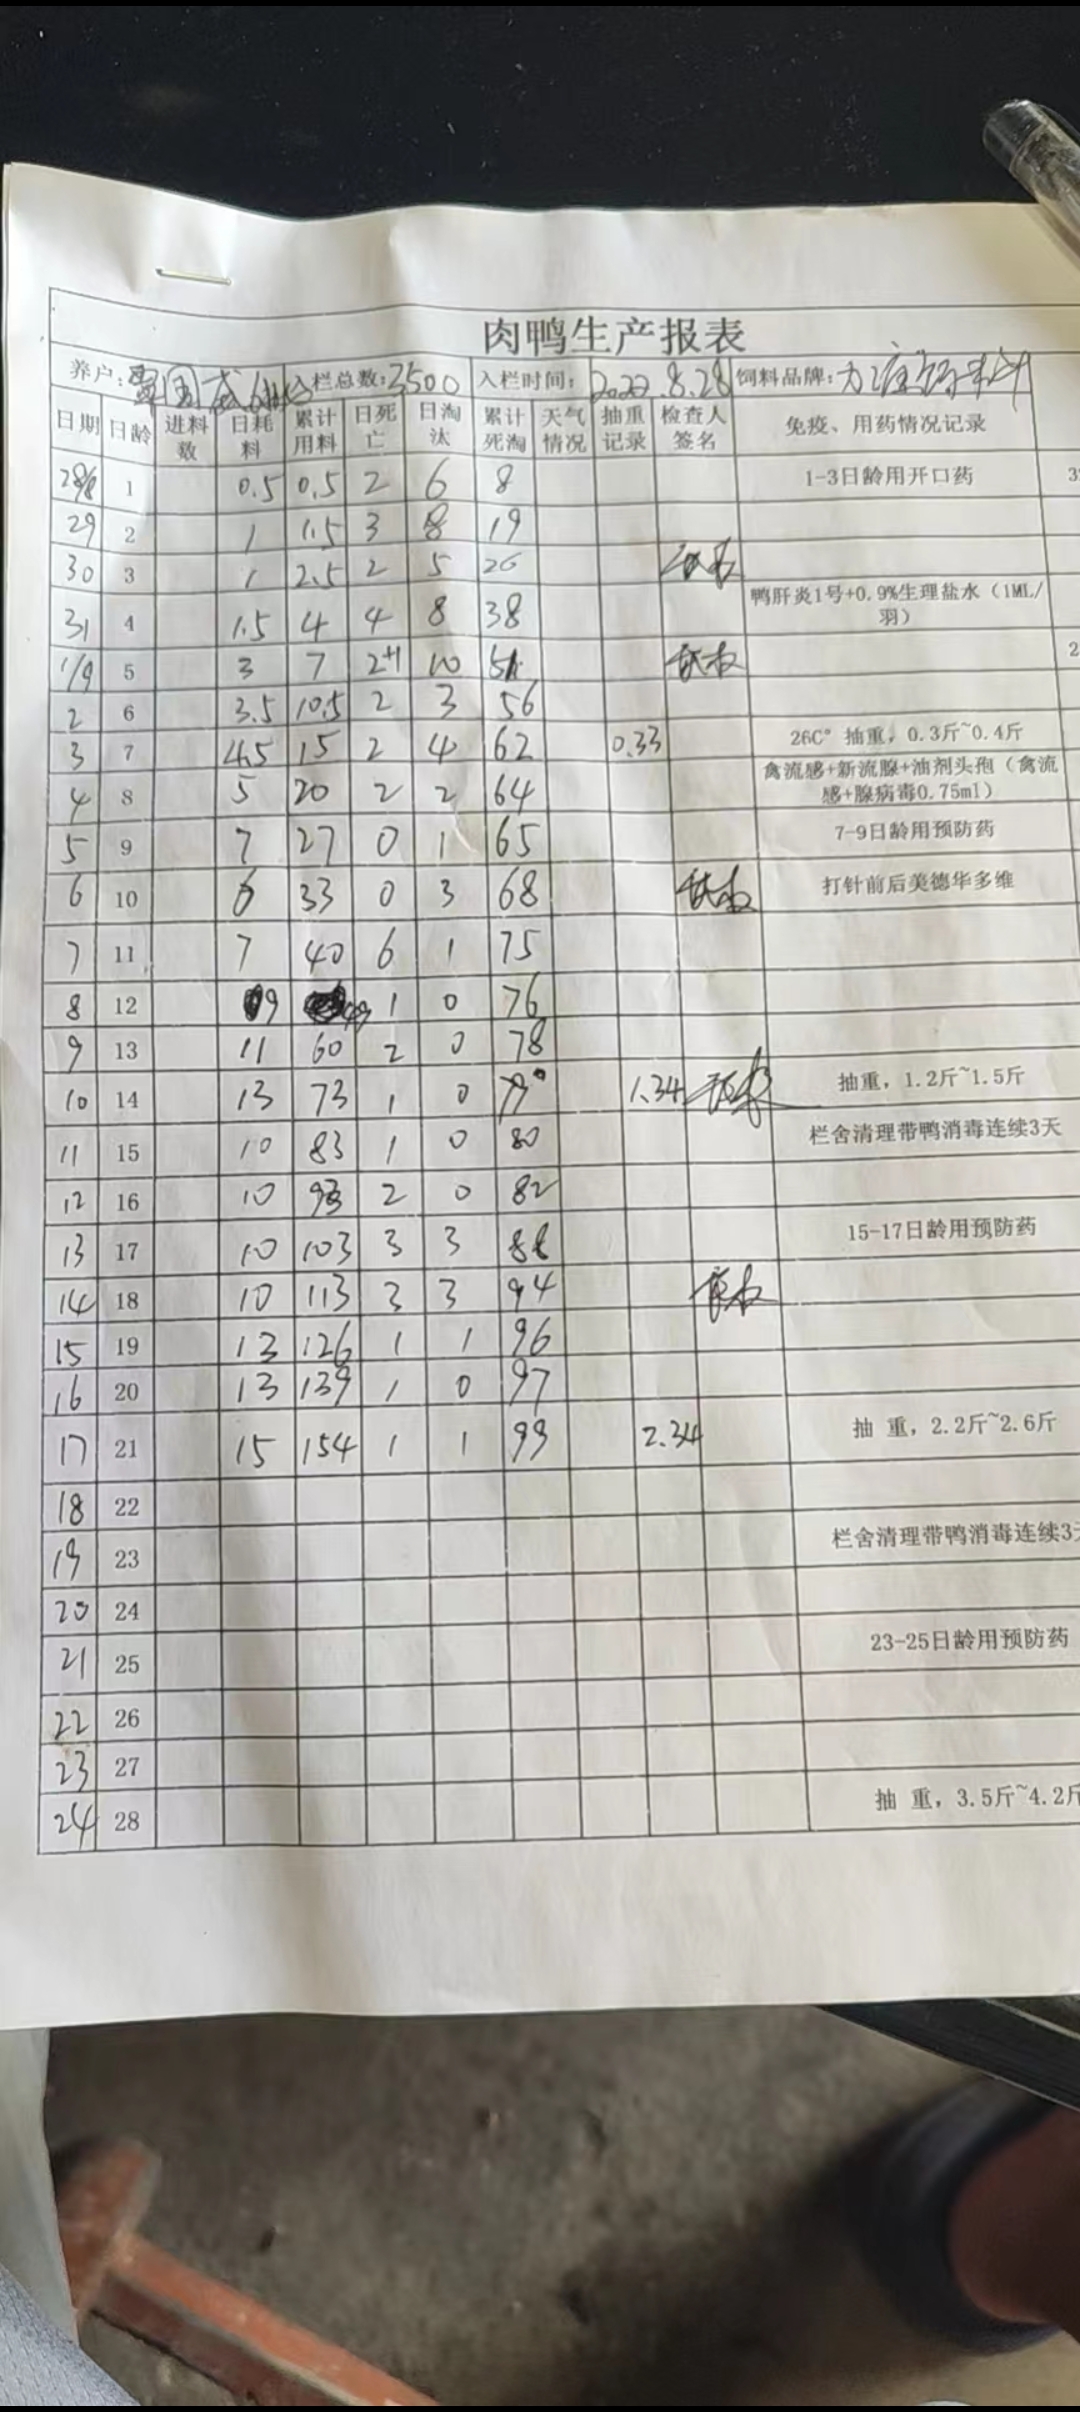 肉鸭生产报表
养户: 覃国 入栏总数:3500 入栏时间: 2022.8.28 饲料品牌:
日期 日龄 进料数 日耗料 累计用料 日死亡 日淘汰 累计死淘 天气情况 抽重记录 检查人签名 免疫、用药情况记录
28/8 1 0.5 0.5 2 6 8 1-3日龄用开口药
29 2 1 1.5 3 8 19
30 3 1 2.5 2 5 26
31 4 1.5 4 4 8 38 鸭肝炎1号+0.9%生理盐水（1ML/羽）
1/9 5 3 7 2+1 10 51
2 6 3.5 10.5 2 3 56
3 7 4.5 15 2 4 62 0.33 26C° 抽重，0.3斤~0.4斤
4 8 5 20 2 2 64 禽流感+新流腺+油剂头孢（禽流感+腺病毒0.75ml）
5 9 7 27 0 1 65 7-9日龄用预防药
6 10 6 33 0 3 68 打针前后美德华多维
7 11 7 40 6 1 75
8 12 9 49 1 0 76
9 13 11 60 2 0 78
10 14 13 73 1 0 79 1.34 抽重，1.2斤~1.5斤
11 15 10 83 1 0 80 栏舍清理带鸭消毒连续3天
12 16 10 93 2 0 82
13 17 10 103 3 3 88 15-17日龄用预防药
14 18 10 113 3 3 94
15 19 13 126 1 1 96
16 20 13 139 1 0 97
17 21 15 154 1 1 99 2.34 抽 重，2.2斤~2.6斤
18 22
19 23 栏舍清理带鸭消毒连续3
20 24
21 25 23-25日龄用预防药
22 26
23 27
24 28 抽 重，3.5斤~4.2斤